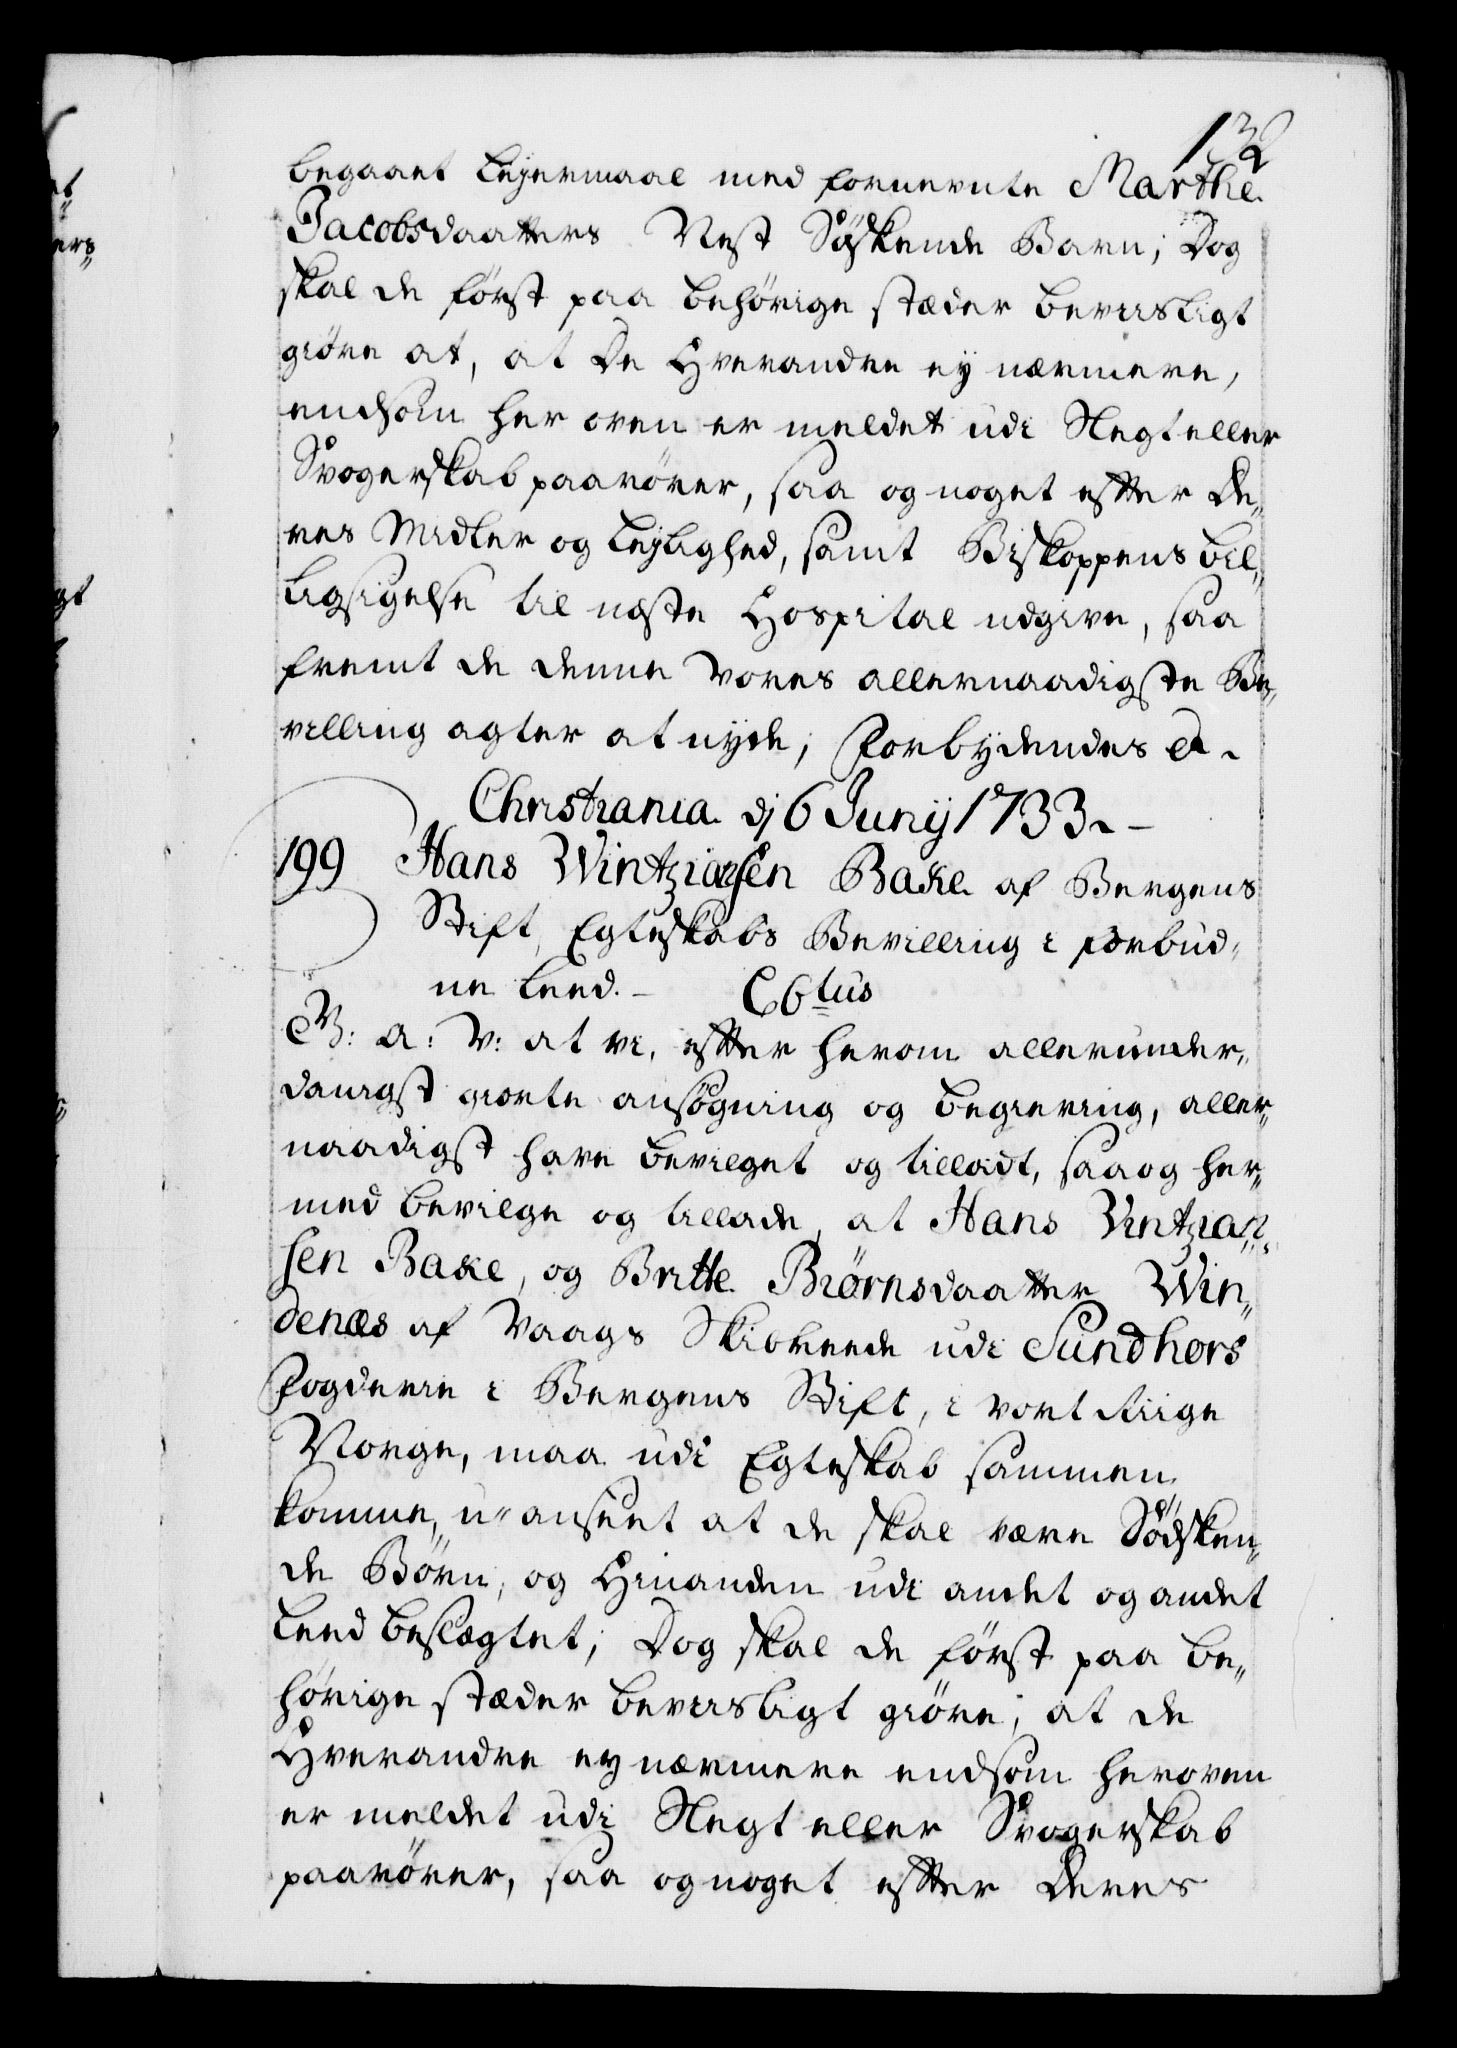 132
begaaet Lejermaal med fornevnte Marthe
Jacobsdaatters Nest Sødskende Barn; Dog
skal de først paa behørige stæder beviisligt
giøre at, at De Hverandre ej nærmere,
endsom her oven er meldet udi Slegt eller
Svogerskab paarører, saa og noget efter De„
res Midler og Lejlighed, samt Biskoppens bil„
ligsigelse til neste Hospital udgive, saa
fremt de denne Vores allernaadigste Be„
villing agter at nyde, Forbydendes et.
Christiania dj 6 Junij 1733.
199 Hans Wintziansen Bake af Bergens
Stift, Egteskabs Bevilling i forbud„
ne Leed. – C6tus
V: a: V: at vi, efter herom allerunder„
danigst giorte ansøgning og begiering, aller„
naadigst have bevilget og tilladt, saa og her„
med bevilge og tillade, at Hans Vintzian„
sen Bake, og Britte Biørnsdaatter Win„
denæs af Vaags Skibreede udi Sundhors
Fogderie i Bergens Stift, i vort Riige
Norge, maa udi Egteskab sammen
komme, u-anseet at de skal være Sødsken„
de Børn, og Hinanden udi andet og andet
Leed beslægtet; Dog skal de først paa be„
hørige stæder beviisligt giøre, at de
Hverandre ej nærmere endsom heroven
er meldet udi Slegt eller Svogerskab
paarører, saa og noget efter Deres